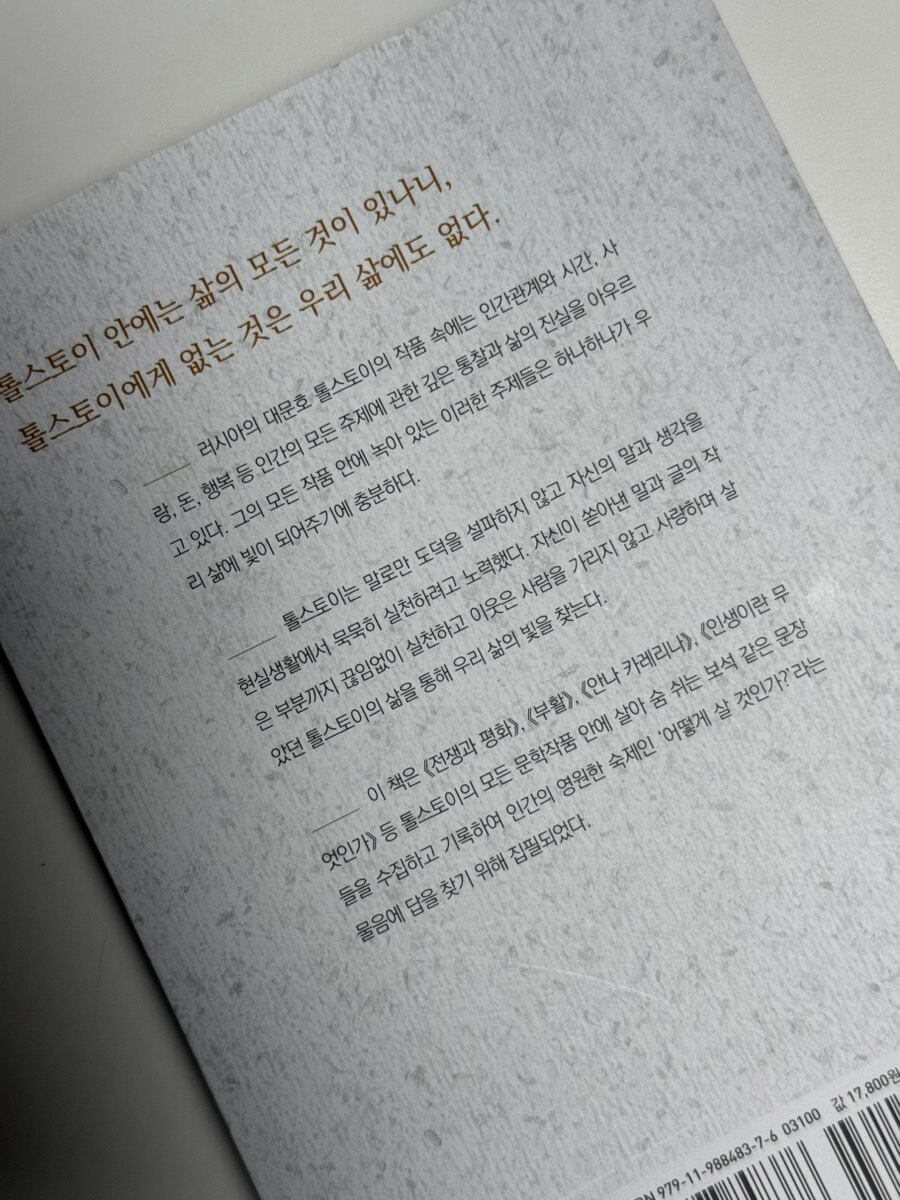 톨스토이 안에는 삶의 모든 것이 있나니,
톨스토이에게 없는 것은 우리 삶에도 없다.
러시아의 대문호 톨스토이의 작품 속에는 인간관계와 시간, 사
랑, 돈, 행복 등 인간의 모든 주제에 관한 깊은 통찰과 삶의 진실을 아우르
고 있다. 그의 모든 작품 안에 녹아 있는 이러한 주제들은 하나하나가 우
리 삶에 빛이 되어주기에 충분하다.
톨스토이는 말로만 도덕을 설파하지 않고 자신의 말과 생각을
현실생활에서 묵묵히 실천하려고 노력했다. 자신이 쏟아낸 말과 글의 작
은 부분까지 끊임없이 실천하고 이웃은 사람을 가리지 않고 사랑하며 살
았던 톨스토이의 삶을 통해 우리 삶의 빛을 찾는다.
이 책은 《전쟁과 평화》, 《부활》, 《안나 카레리나》, 《인생이란 무
엇인가》 등 톨스토이의 모든 문학작품 안에 살아 숨 쉬는 보석 같은 문장
들을 수집하고 기록하여 인간의 영원한 숙제인 ‘어떻게 살 것인가?’라는
물음에 답을 찾기 위해 집필되었다.
값 17,800원
979-11-988483-7-6 03100